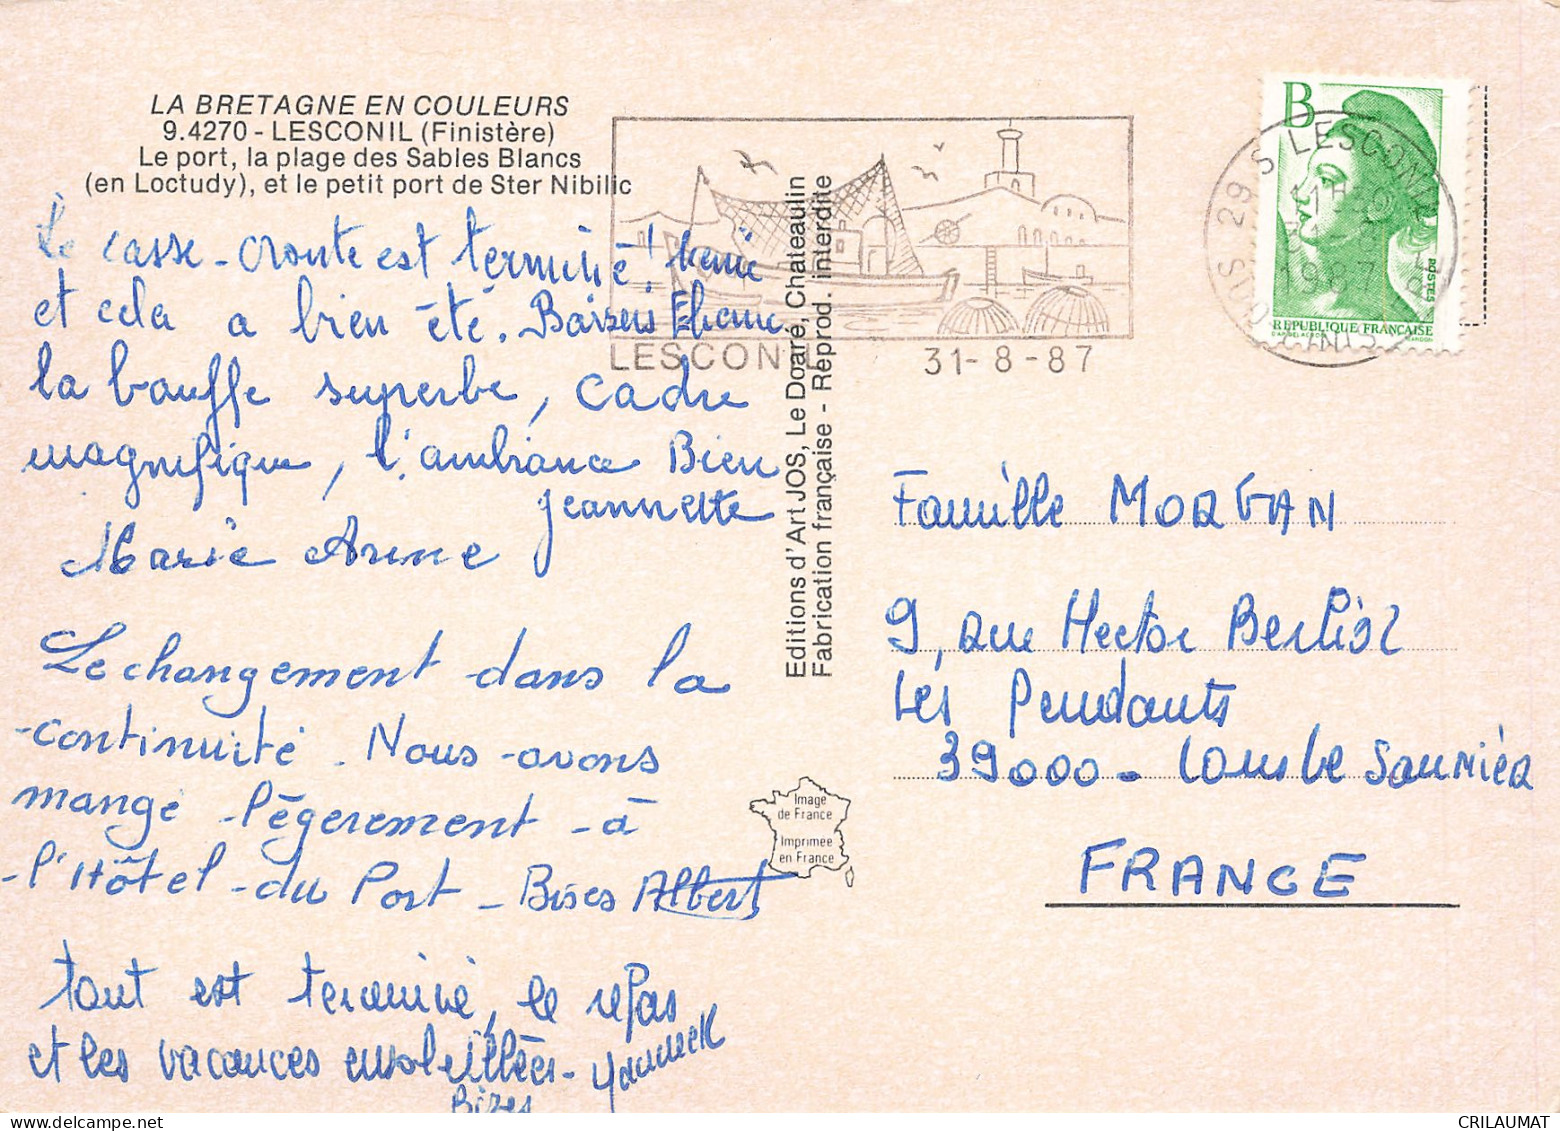 LA BRETAGNE EN COULEURS
9.4270 - LESCONIL (Finistère)
Le port, la plage des Sables Blancs
(en Loctudy), et le petit port de Ster Nibilic
Le casse-croute est terminé!
et cela a bien été. Baisers
la bouffe superbe, cadre
magnifique, l'ambiance Bien
Jeannette
Marie Anne
Le changement dans la
continuité. Nous avons
mangé légerement à
l'Hôtel du Port - Bises Albert
tout est terminé, le repas
et les vacances ensoleillées - Yannick
Bizes
Editions d'Art JOS, Le Doaré, Chateaulin
Fabrication française - Reprod. interdite
Image
de France
Imprimée
en France
LESCONIL 31-8-87
29 S LESCONIL
1987
B
POSTES
REPUBLIQUE FRANÇAISE
Famille MORGAN
9, rue Hector Berlioz
Les Pendants
39000 - Lons le Saunier
FRANCE
CRILAUMAT